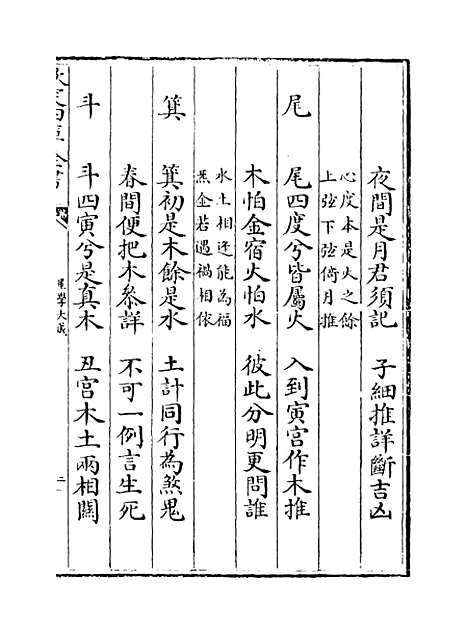 夜間是月君須記　子細推詳斷吉凶
心度本是火之餘
上弦下弦倚月推
尾　尾四度兮皆屬火　入到寅宫作木推
木怕金宿火怕水　彼此分明更問誰
水土相逢能為福
炁金若遇禍相依
箕　箕初是木餘是水　土計同行為煞鬼
春間便把木叅詳　不可一例言生死
斗　斗四寅兮是真木　丑宫木土兩相關
欽定四庫全書
星學大成